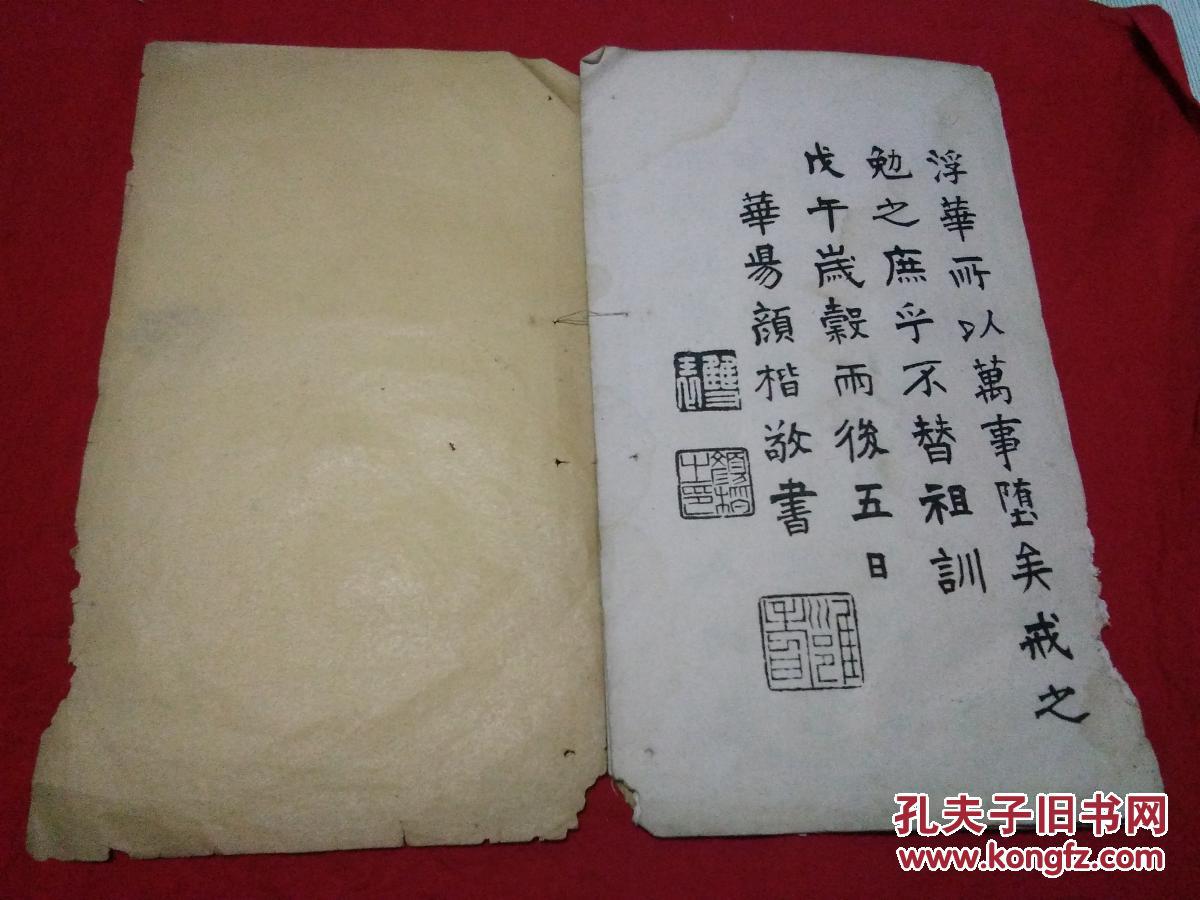 浮華所以萬事堕矣戒之
勉之庶乎不替祖訓
戊午歲穀雨後五日
華易顔楷敬書
雙
顔楷
孔夫子旧书网
www.kongfz.com